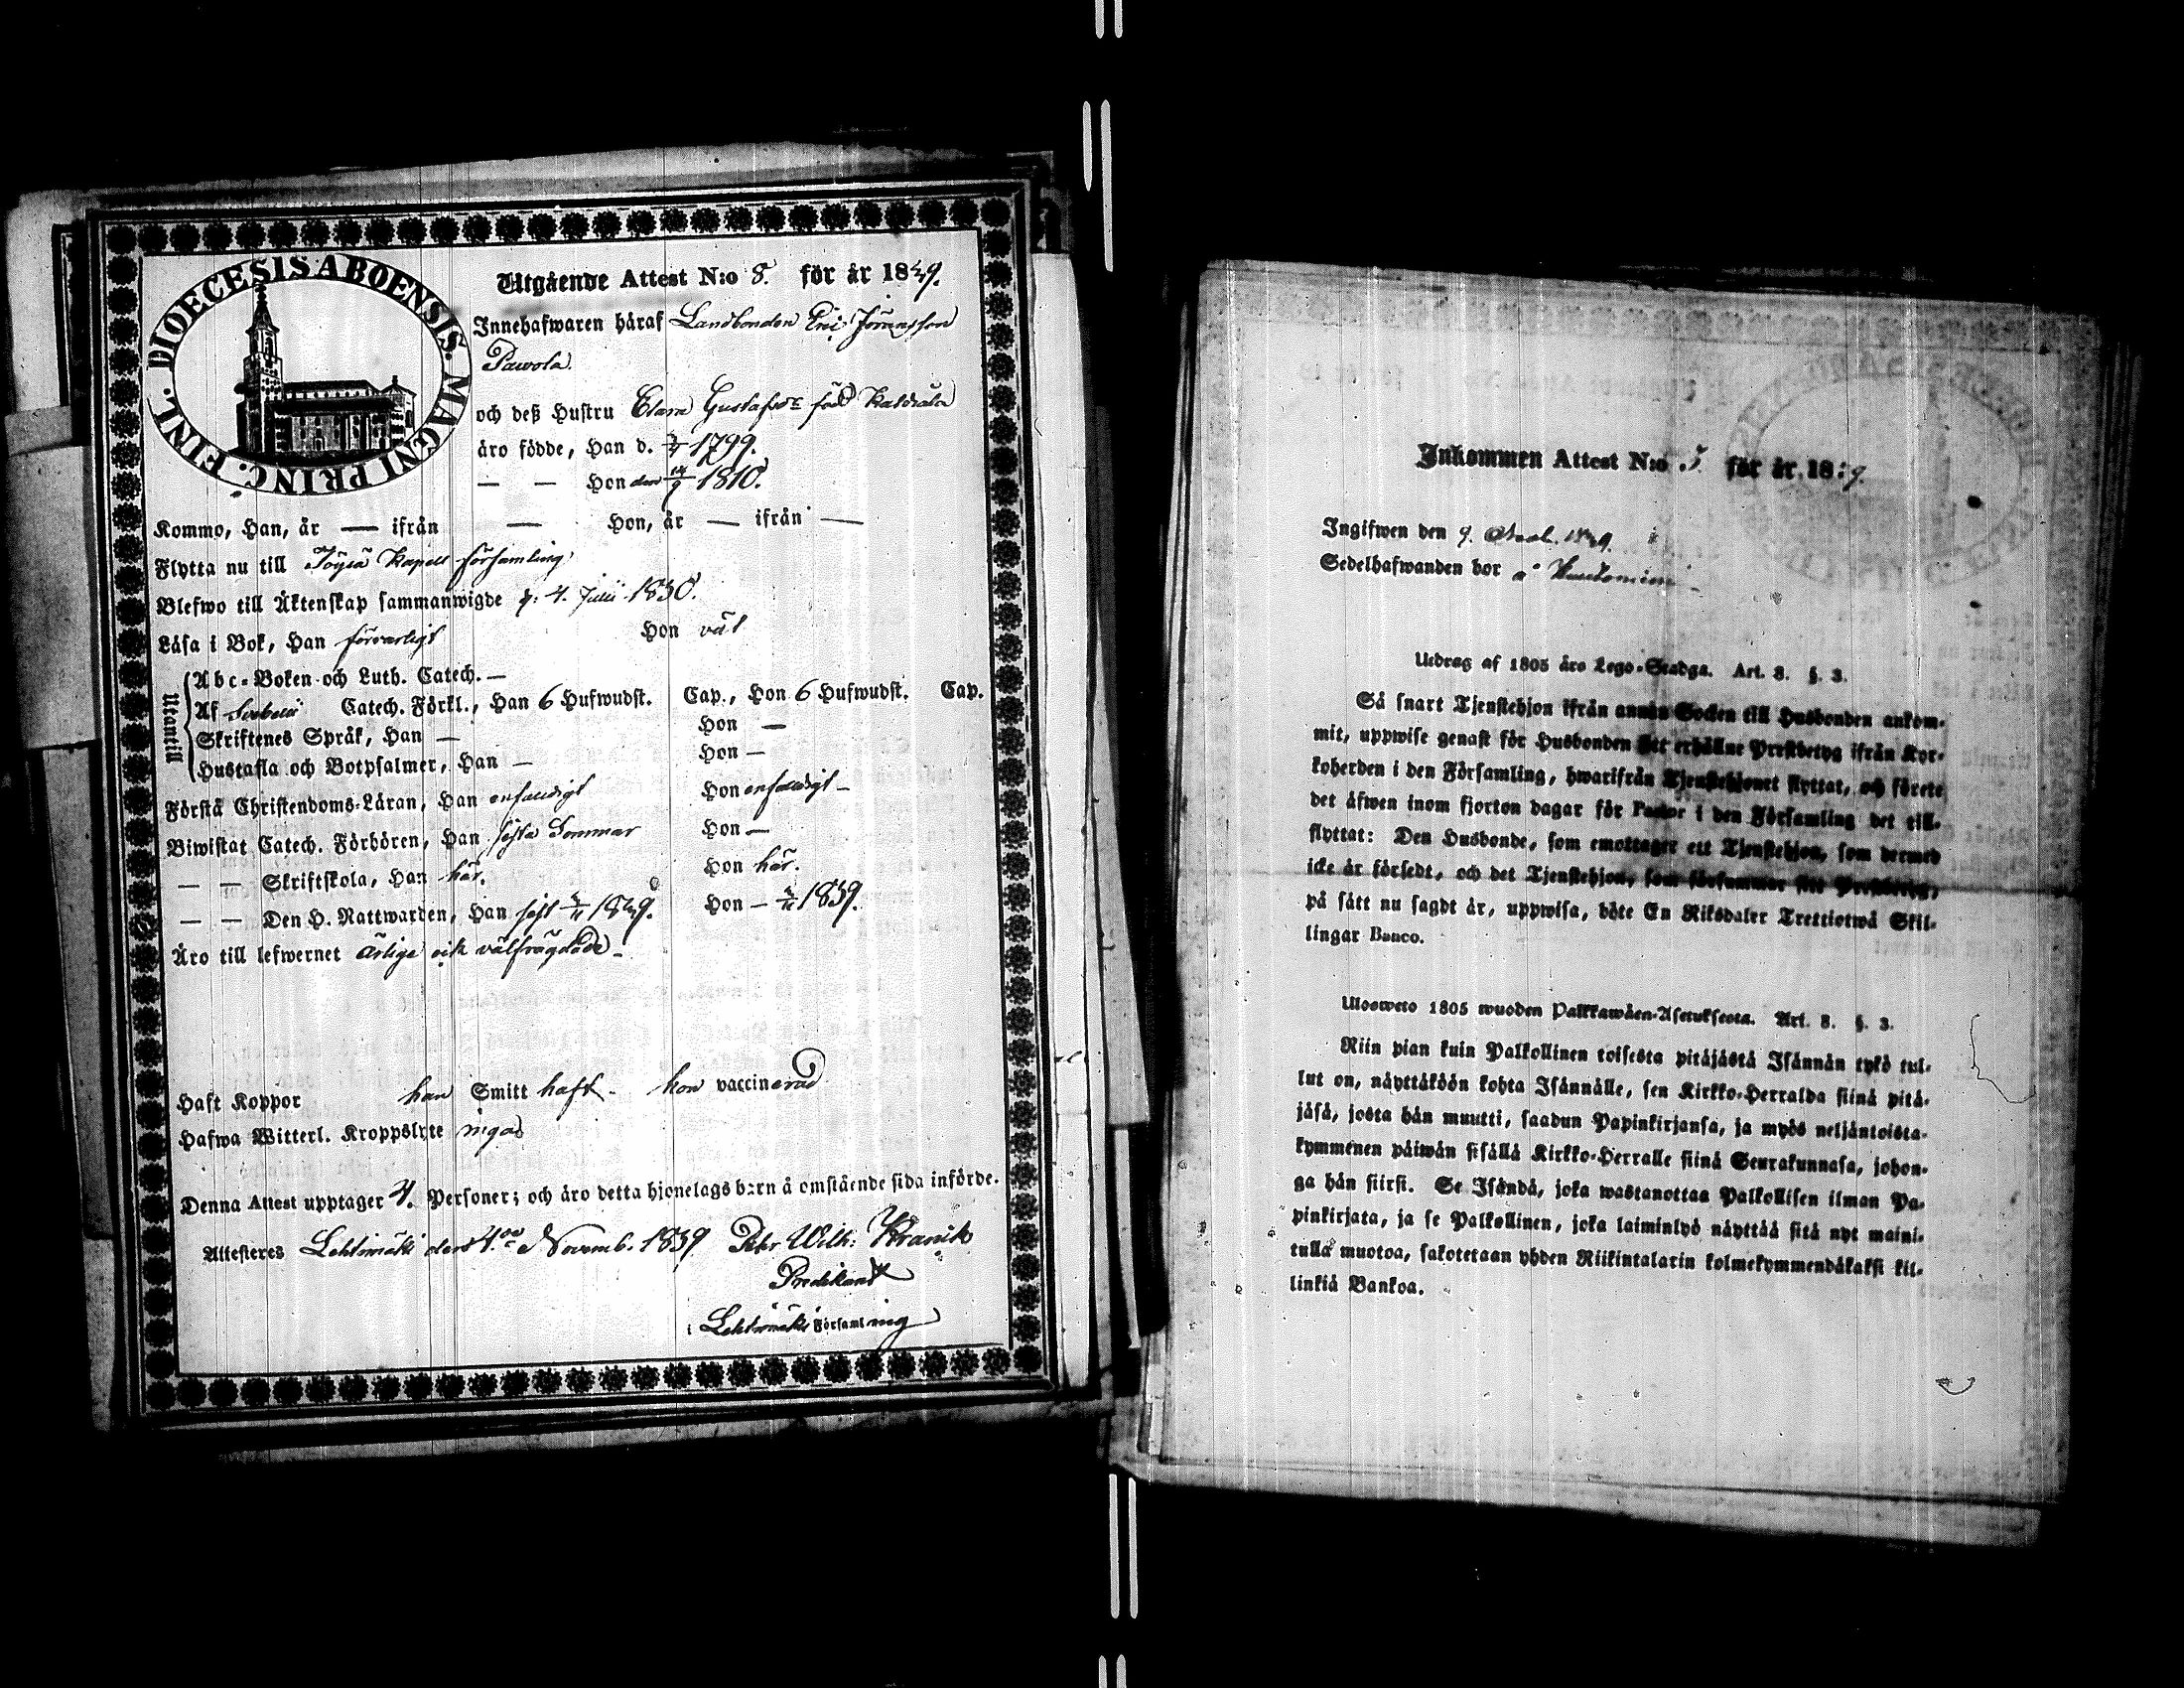 DIOECESIS ABOENSIS. MAGNI PRINC. FINL.
Utgående Attest N:o 8. för år 1839.
Innehafwaren häraf Landbonden Eric Jöransson
Pawola.
och deß Hustru Clara Gustafsdr född
äro födde, Han d. 1799.
— — Hon den 14/9 1810.
Kommo, Han, år — ifrån — Hon, år — ifrån —
Flytta nu till Töysä Kapell församling
Blefwo till Äktenskap sammanwigde d. 4. Julii 1830.
Läsa i Bok, Han försvarligt Hon väl
Utantill
Abc-Boken och Luth. Catech. —
Af Svebelii Catech. Förkl., Han 6 Hufwudst. Cap., Hon 6 Hufwudst. Cap.
Skriftenes Språk, Han — Hon —
Hustafla och Botpsalmer, Han — Hon —
Förstå Christendoms-Läran, Han enfaldigt Hon enfaldigt —
Biwistat Catech. Förhören, Han sista Sommar Hon —
— — Skriftskola, Han här. Hon här.
— — Den H. Nattwarden, Han sist 3/11 1839. Hon — 3/11 1839.
Äro till lefwernet ärliga och välfrägdade —
Haft Koppor han Smitt haft — hon vaccinerad
Hafwa Witterl. Kroppslyte inga
Denna Attest upptager 4. Personer; och äro detta hjonelags barn å omstående sida införde.
Attesteres Lehtimäki den 4:de Novemb. 1839 Petr Wilh: Kranck
Predikant
i Lehtimäki Församling
Inkommen Attest N:o 5 för år 1839.
Ingifwen den 9. Novb. 1839.
Sedelhafwanden bor å
Utdrag af 1805 års Lego-Stadga. Art. 8. §. 3.
Så snart Tjenstehjon ifrån annan Socken till Husbonden ankom-
mit, uppwise genast för Husbonden sitt erhållne Prestbetyg ifrån Kyr-
koherden i den Församling, hwarifrån Tjenstehjonet flyttat, och förete
det äfwen inom fjorton dagar för Pastor i den Församling det till-
flyttat: Den Husbonde, som emottager ett Tjenstehjon, som dermed
icke är försedt, och det Tjenstehjon, som försummar sitt Prestbetyg,
på sätt nu sagdt är, uppwisa, böte En Riksdaler Trettiotwå Skil-
lingar Banco.
Ulosweto 1805 wuoden Palkkawäen-Asetuksesta. Art. 8. §. 3.
Niin pian kuin Palkollinen toisesta pitäjästä Isännän tykö tul-
lut on, näyttäköön kohta Isännälle, sen Kirkko-Herralda siinä pitä-
jäsä, josta hän muutti, saadun Papinkirjansa, ja myös neljäntoista-
kymmenen päiwän sisällä Kirkko-Herralle siinä Seurakunnasa, johon-
ga hän siirsi. Se Isändä, joka wastanottaa Palkollisen ilman Pa-
pinkirjata, ja se Palkollinen, joka laiminlyö näyttää sitä nyt maini-
tulla muotoa, sakotetaan yhden Riikintalarin kolmekymmendäkaksi kil-
linkiä Bankoa.